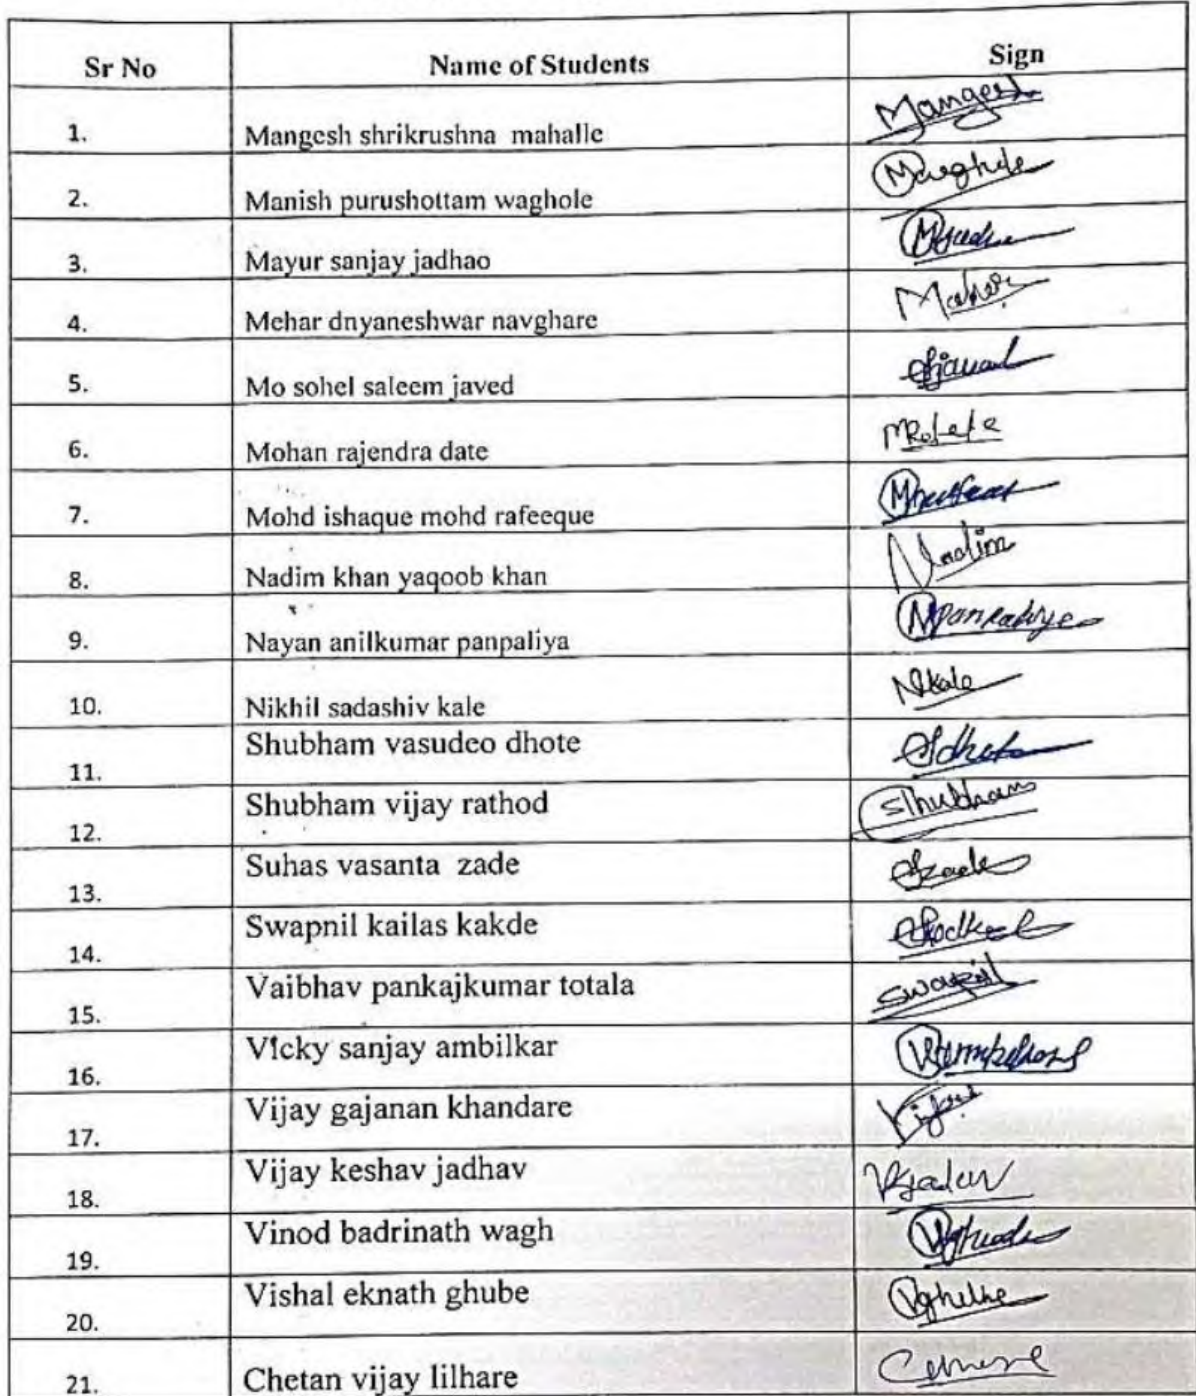 Sr No Name of Students Sign
1. Mangesh shrikrushna mahalle Mangesh
2. Manish purushottam waghole
3. Mayur sanjay jadhao
4. Mehar dnyaneshwar navghare
5. Mo sohel saleem javed
6. Mohan rajendra date
7. Mohd ishaque mohd rafeeque
8. Nadim khan yaqoob khan Nadim
9. Nayan anilkumar panpaliya
10. Nikhil sadashiv kale Nkale
11. Shubham vasudeo dhote
12. Shubham vijay rathod Shubham
13. Suhas vasanta zade Szade
14. Swapnil kailas kakde
15. Vaibhav pankajkumar totala Swapnil
16. Vicky sanjay ambilkar
17. Vijay gajanan khandare
18. Vijay keshav jadhav
19. Vinod badrinath wagh
20. Vishal eknath ghube
21. Chetan vijay lilhare